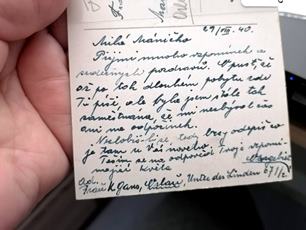 29/VIII. 40.
Milá Máničko
Přijmi mnoho vzpomínek a
srdečných pozdravů. Odpusť, že
až po tak dlouhém pobytu zde
Ti píši, ale byla jsem stále tak
zaměstnaná, že mi nezbývalo času
ani na odpočinek.
tedy brzy odepiš co
je tam u Vás nového.
Těším se na odpověď Tvoje vzpomí-
nající Květa
Adr. Frau K. Gans, Unter den Linden 67/I